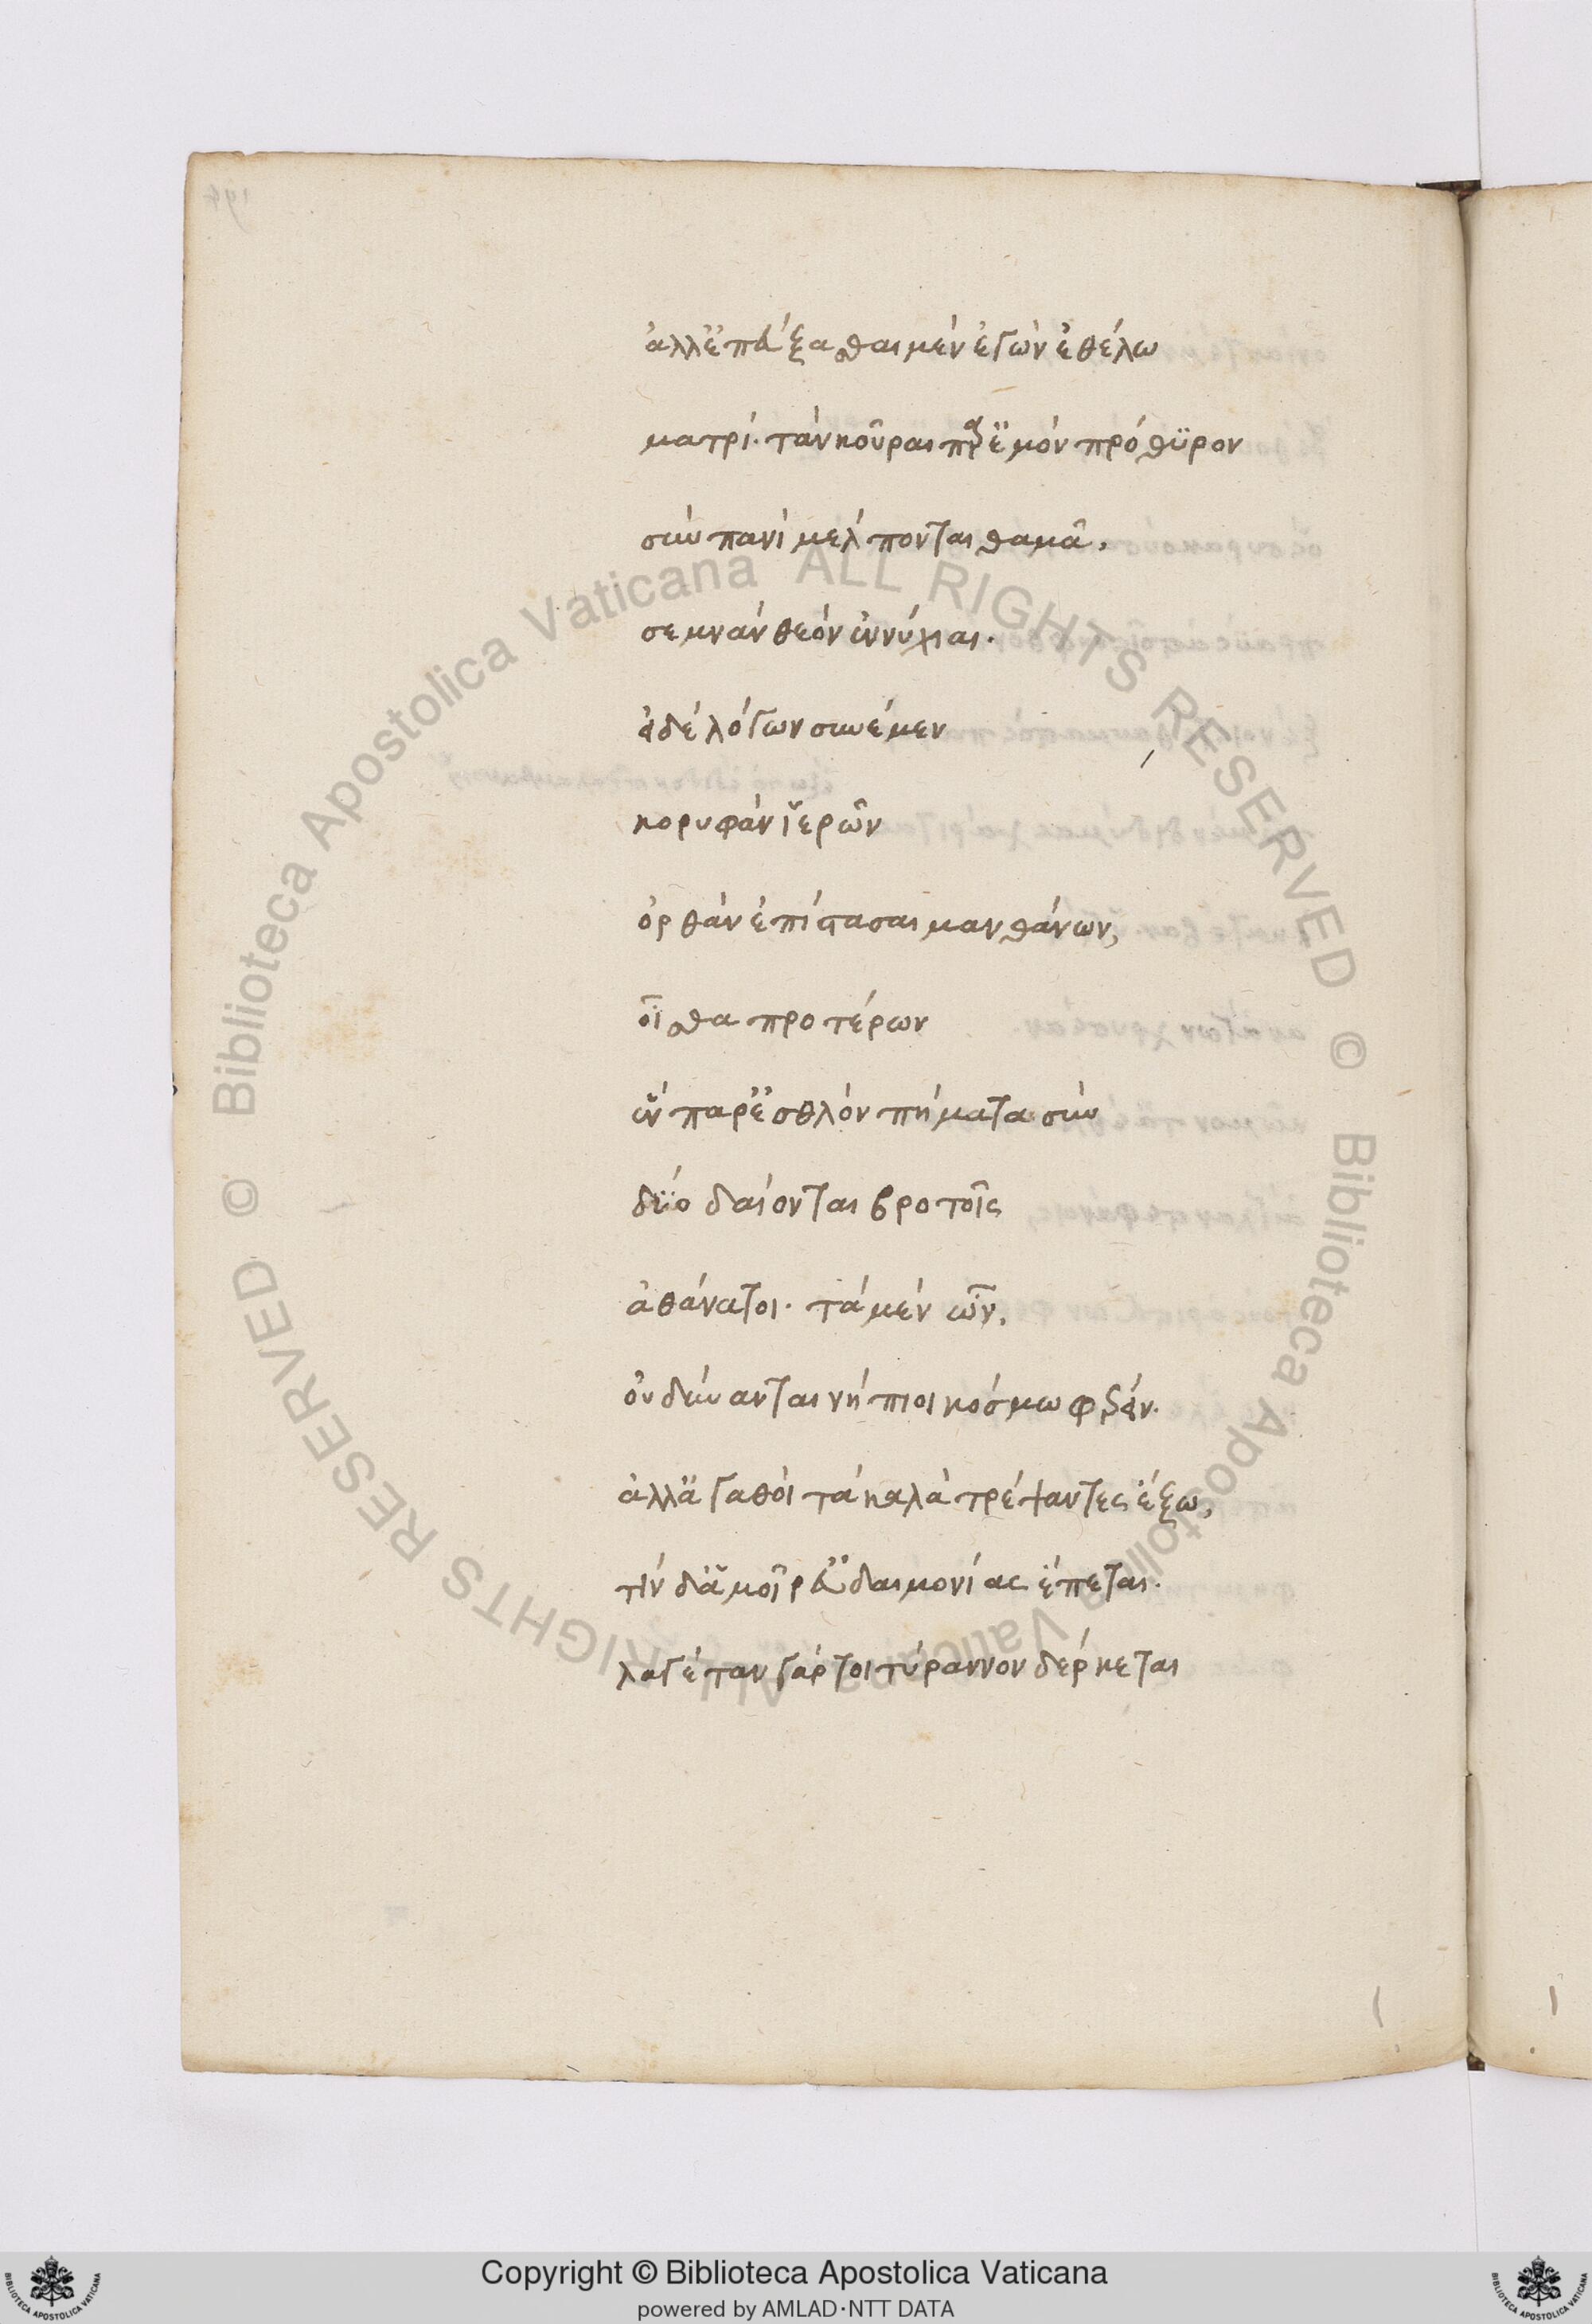 ἀλλ' ἐπεύξασθαι μὲν ἐγὼν ἐθέλω
ματρί· τὰν κοῦραι παρ' ἐμὸν πρόθυρον
σὺν πανὶ μέλπονται θαμὰ,
σεμνὰν θεὸν ἐννύχιαι·
εἰ δὲ λόγων συνέμεν
κορυφὰν ἱερῶν
ὀρθὰν ἐπίστασαι μανθάνων,
οἶσθα προτέρων
ἓν παρ' ἐσθλὸν πήματα σὺν
δύο δαίονται βροτοῖς
ἀθάνατοι· τὰ μὲν ὦν,
οὐ δύνανται νήπιοι κόσμω φέρειν·
ἀλλ' ἀγαθοὶ τὰ καλὰ τρέψαντες ἔξω,
τὶν δὲ μοῖρ' εὐδαιμονίας ἕπεται·
λαγέταν γάρ τοι τύραννον δέρκεται
Biblioteca Apostolica Vaticana ALL RIGHTS RESERVED ©
Biblioteca Apostolica Vaticana ALL RIGHTS RESERVED ©
Copyright © Biblioteca Apostolica Vaticana
powered by AMLAD·NTT DATA